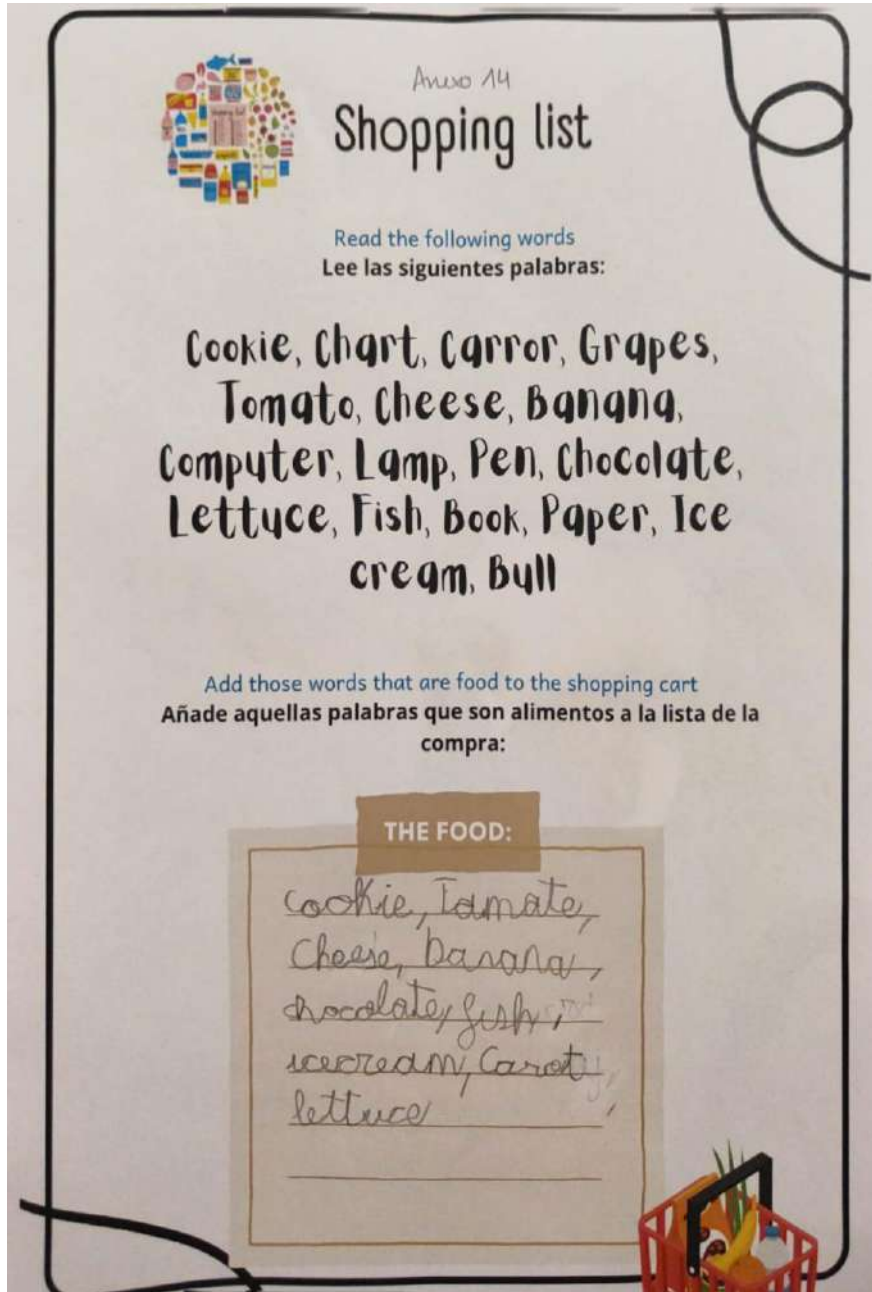 Anexo 14
Shopping list
Read the following words
Lee las siguientes palabras:
Cookie, Chart, Carror, Grapes,
Tomato, Cheese, Banana,
Computer, Lamp, Pen, Chocolate,
Lettuce, Fish, Book, Paper, Ice
cream, Bull
Add those words that are food to the shopping cart
Añade aquellas palabras que son alimentos a la lista de la
compra:
THE FOOD:
cookie, Tamate,
Cheese, banana,
chocolate, fish,
icecream, Carot,
lettuce